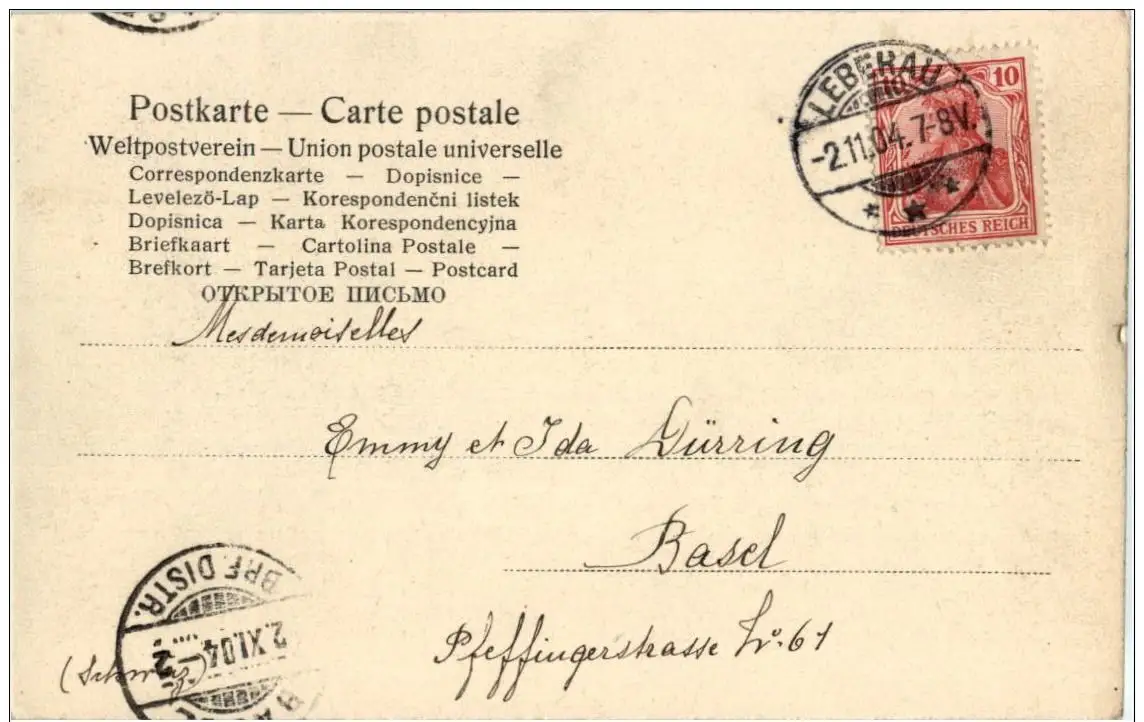 Postkarte — Carte postale
Weltpostverein — Union postale universelle
Correspondenzkarte — Dopisnice —
Levelezö-Lap — Korespondenčni listek
Dopisnica — Karta Korespondencyjna
Briefkaart — Cartolina Postale —
Brefkort — Tarjeta Postal — Postcard
ОТКРЫТОЕ ПИСЬМО
LEBERAU
-2.11.04.7-8V.
10
DEUTSCHES REICH
Mesdemoiselles
Emmy et Ida Dürring
Basel
Pfeffingerstrasse No. 61
(Schweiz)
BRF. DISTR.
2.XI.04